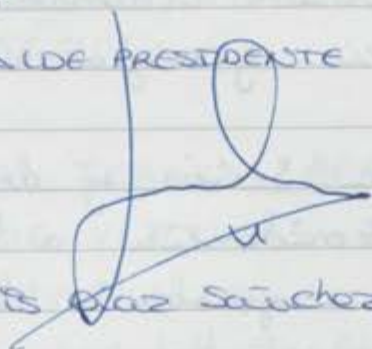 ALDE PRESIDENTE
is Diaz Sánchez